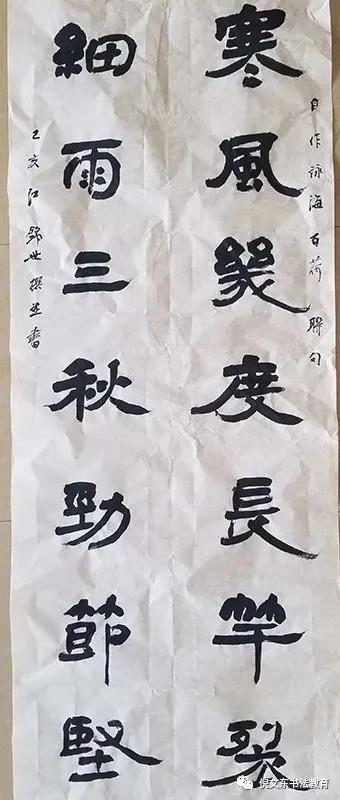 自作詠海百荷聯句
寒風幾度長竿裂
細雨三秋勁節堅
己亥江世撰並書
倪文东书法教育